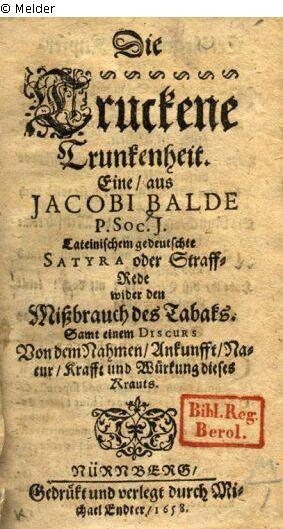 © Melder
Die
Truckene
Trunkenheit.
Eine/aus
JACOBI BALDE
P. Soc. J.
Lateinischem gedeutschte
SATYRA oder Straff-
Rede
wider den
Mißbrauch des Tabaks.
Samt einem DISCURS
Von dem Nahmen/Ankunfft/Na-
tur/Krafft und Würkung dieses
Krauts.
Bibl. Reg.
Berol.
NÜRNBERG/
Gedrükt und verlegt durch Mi-
chael Endter/1658.